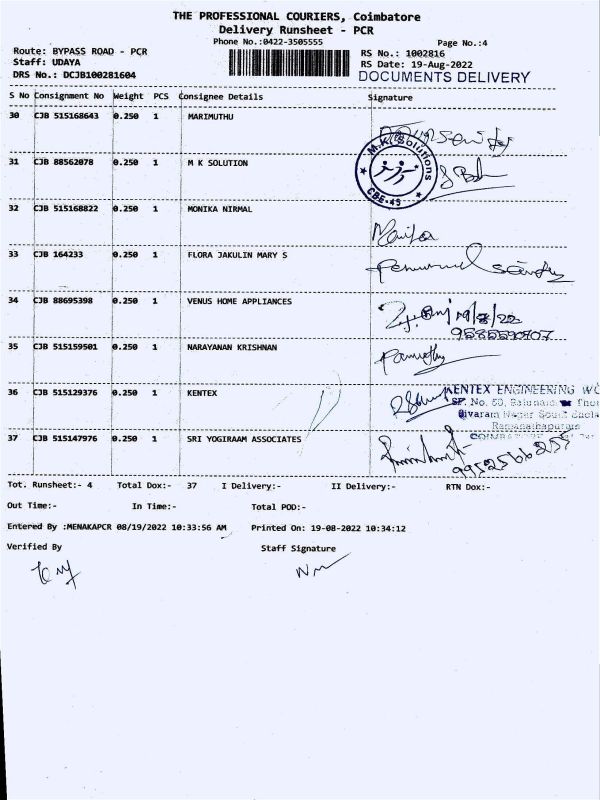 THE PROFESSIONAL COURIERS, Coimbatore
Delivery Runsheet - PCR
Phone No.:0422-3505555
Page No.:4
Route: BYPASS ROAD - PCR
RS No.: 1002816
Staff: UDAYA
RS Date: 19-Aug-2022
DRS No.: DCJB100281604
DOCUMENTS DELIVERY
S No Consignment No Weight PCS Consignee Details Signature
30 CJB 515168643 0.250 1 MARIMUTHU
31 CJB 88562078 0.250 1 M K SOLUTION
M.K. Solutions
CBE-45
32 CJB 515168822 0.250 1 MONIKA NIRMAL
33 CJB 164233 0.250 1 FLORA JAKULIN MARY S
34 CJB 88695398 0.250 1 VENUS HOME APPLIANCES
19/8/22
35 CJB 515159501 0.250 1 NARAYANAN KRISHNAN
36 CJB 515129376 0.250 1 KENTEX
KENTEX ENGINEERING
SF. No. 50,
37 CJB 515147976 0.250 1 SRI YOGIRAAM ASSOCIATES
Tot. Runsheet:- 4 Total Dox:- 37 I Delivery:- II Delivery:- RTN Dox:-
Out Time:- In Time:- Total POD:-
Entered By :MENAKAPCR 08/19/2022 10:33:56 AM Printed On: 19-08-2022 10:34:12
Verified By Staff Signature